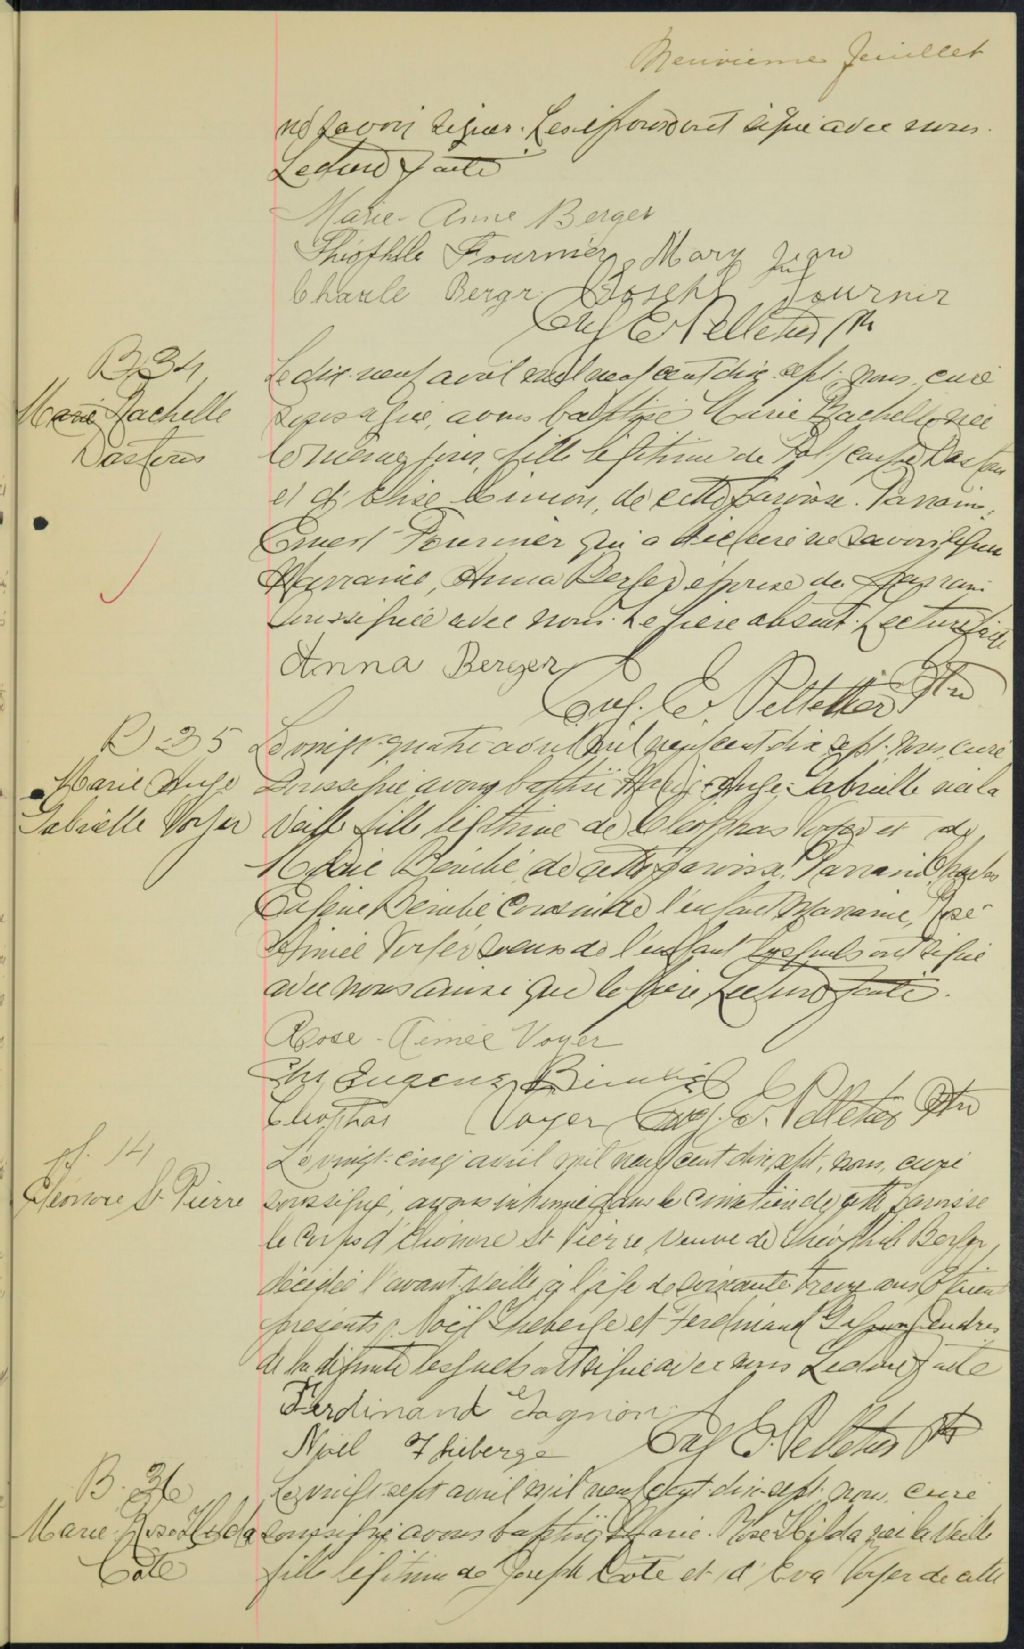 Neuvieme feuillet
né savoir signer. Les époux ont signé avec nous.
Lecture faite
Marie-Anne Berger
Théophile Fournier Mary Jean
Charle Bergr. Joseph Fournier
Eug E Pelletier Ptr
B 34
Marie Rachelle
Le dix-neuf avril mil neuf cent dix-sept, nous, curé
soussigné, avons baptisé Marie Rachelle, née
le même jour, fille légitime de
et d'Elise Cimon, de cette paroisse. Parrain,
Ernest Fournier qui a déclaré ne savoir signer
Marraine, Anna Berger épouse du parrain
soussignée avec nous. Le père absent. Lecture faite
Anna Berger
Eug. E. Pelletier Ptre
B 35
Marie Ange
Gabrielle Voyer
Le vingt-quatre avril mil neuf cent dix-sept, nous, curé
soussigné, avons baptisé Marie-Ange-Gabrielle née la
veille fille légitime de Cléophas Voyer et de
Marie Bérubé de cette paroisse. Parrain Charles
Eugène Bérubé cousin de l'enfant Marraine, Rose
Aimée Voyer soeur de l'enfant lesquels ont signé
avec nous ainsi que le père. Lecture faite.
Rose-Aimée Voyer
Chs Eugene Bérubé
Cléophas Voyer Eug. E. Pelletier Ptre
S. 14
Eléonore St Pierre
Le vingt-cinq avril mil neuf cent dix-sept, nous, curé
soussigné, avons inhumé dans le cimetière de cette paroisse
le corps d'Eléonore St Pierre, veuve de Théophile Berger,
décédée l'avant-veille à l'âge de soixante treize ans. Etaient
présents: Noël Theberge et Ferdinand Gagnon, gendres
de la défunte lesquels ont signé avec nous Lecture faite
Ferdinand Gagnon
Noël Theberge Eug E. Pelletier Ptr
B. 36
Marie-Rose Hilda
Côté
Le vingt-sept avril mil neuf cent dix-sept, nous, curé
soussigné avons baptisé Marie-Rose Hilda née la veille
fille légitime de Joseph Côté et d'Eva Voyer de cette